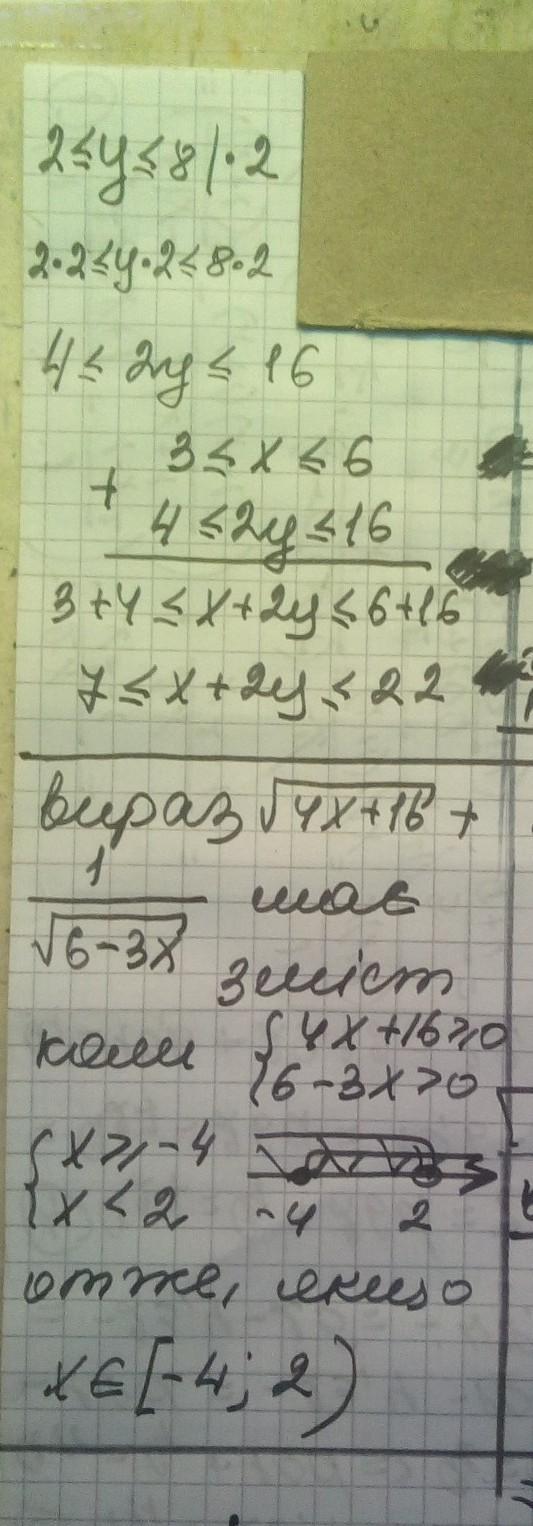 2≤y≤8 | ·2
2·2≤y·2≤8·2
4≤ 2y ≤ 16
+ 3≤ x ≤ 6
4 ≤2y≤16
3+4 ≤x+2y≤6+16
7 ≤ x+2y ≤ 22
вираз √4x+16 +
1
√6-3x має
зміст
коли { 4x+16≥0
{ 6-3x>0
{ x≥-4
{ x<2 -4 2
отже, якщо
x∈[-4; 2)